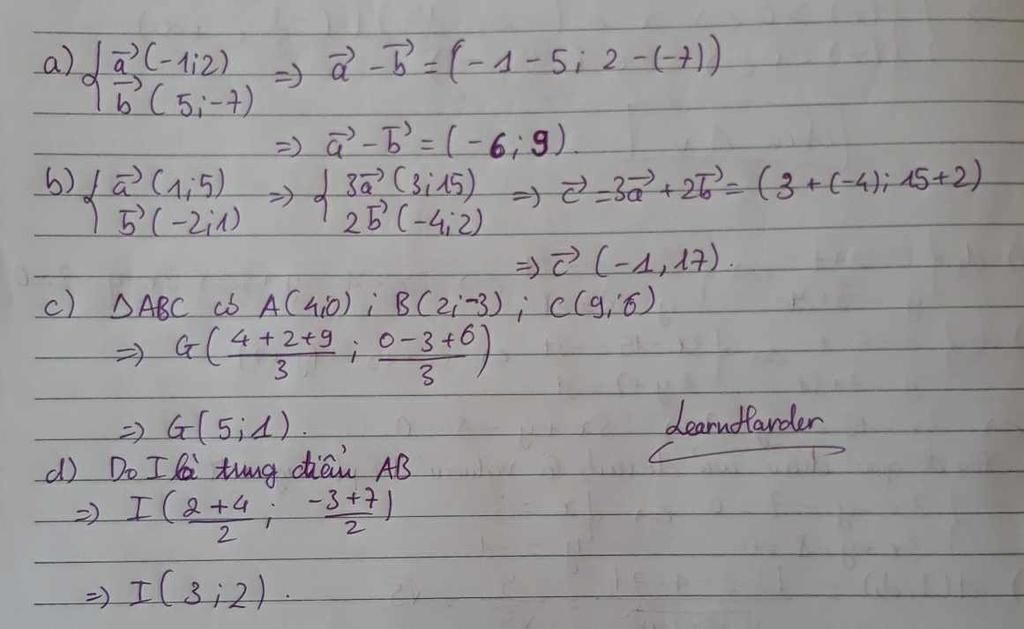 a) { a⃗ (-1;2) => a⃗ - b⃗ = (-1-5; 2-(-7))
b⃗ (5;-7)
=> a⃗ - b⃗ = (-6;9).
b) { a⃗ (1;5) => { 3a⃗ (3;15) => c⃗ = 3a⃗ + 2b⃗ = (3+(-4); 15+2)
b⃗ (-2;1) 2b⃗ (-4;2)
=> c⃗ (-1,17).
c) ΔABC có A(4;0) ; B(2;-3) ; C(9;6)
=> G( (4+2+9)/3 ; (0-3+6)/3 )
=> G(5;1).
LearnHarder
d) Do I là trung điểm AB
=> I( (2+4)/2 ; (-3+7)/2 )
=> I(3;2).